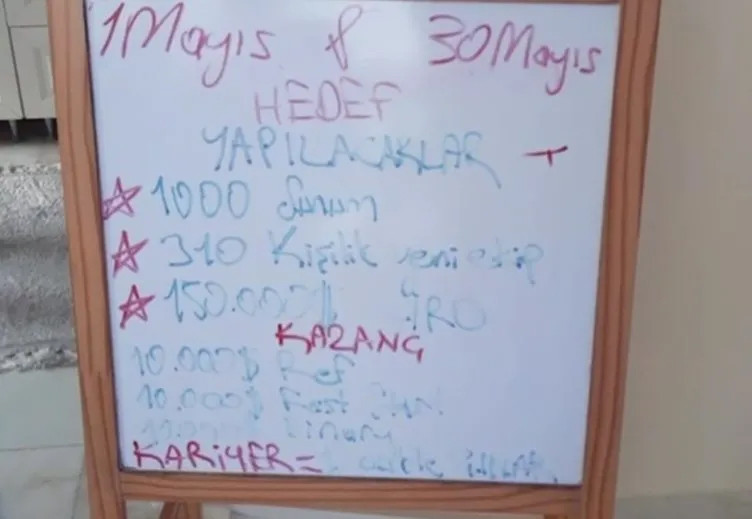 1 Mayıs & 30 Mayıs
HEDEF
YAPILACAKLAR +
1000 Sunum
310 Kişilik yeni ekip
150.000$
KAZANÇ
10.000$ Ref
10.000$
binary
KARİYER =